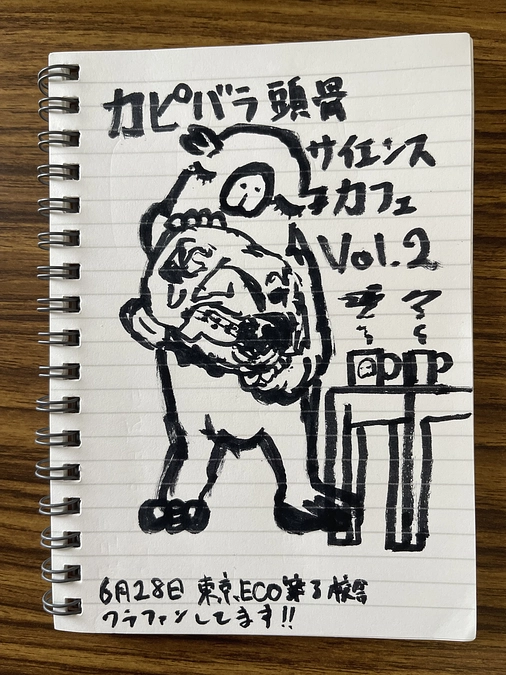 カピバラ頭骨
サイエンス
カフェ
Vol.2
6月28日 東京ECO 第3校舎
クラファンしてます!!